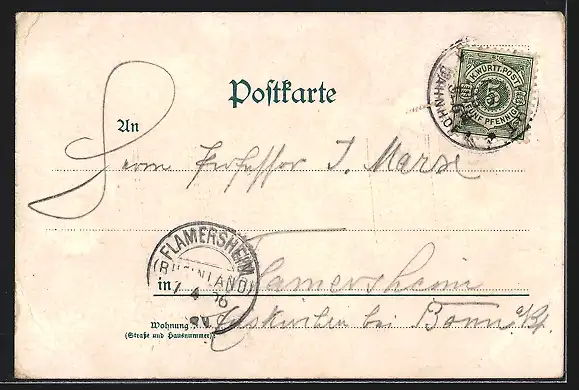 Postkarte
K. WÜRTT. POST
5
FÜNF PFENNIG
BAHNHOF
An
Herrn Professor J. Marx
FLAMERSHEIM
(RHEINLAND)
7 4 96
in Flamersheim
Wohnung
(Straße und Hausnummer)
Euskirchen bei Bonn a/Rh.